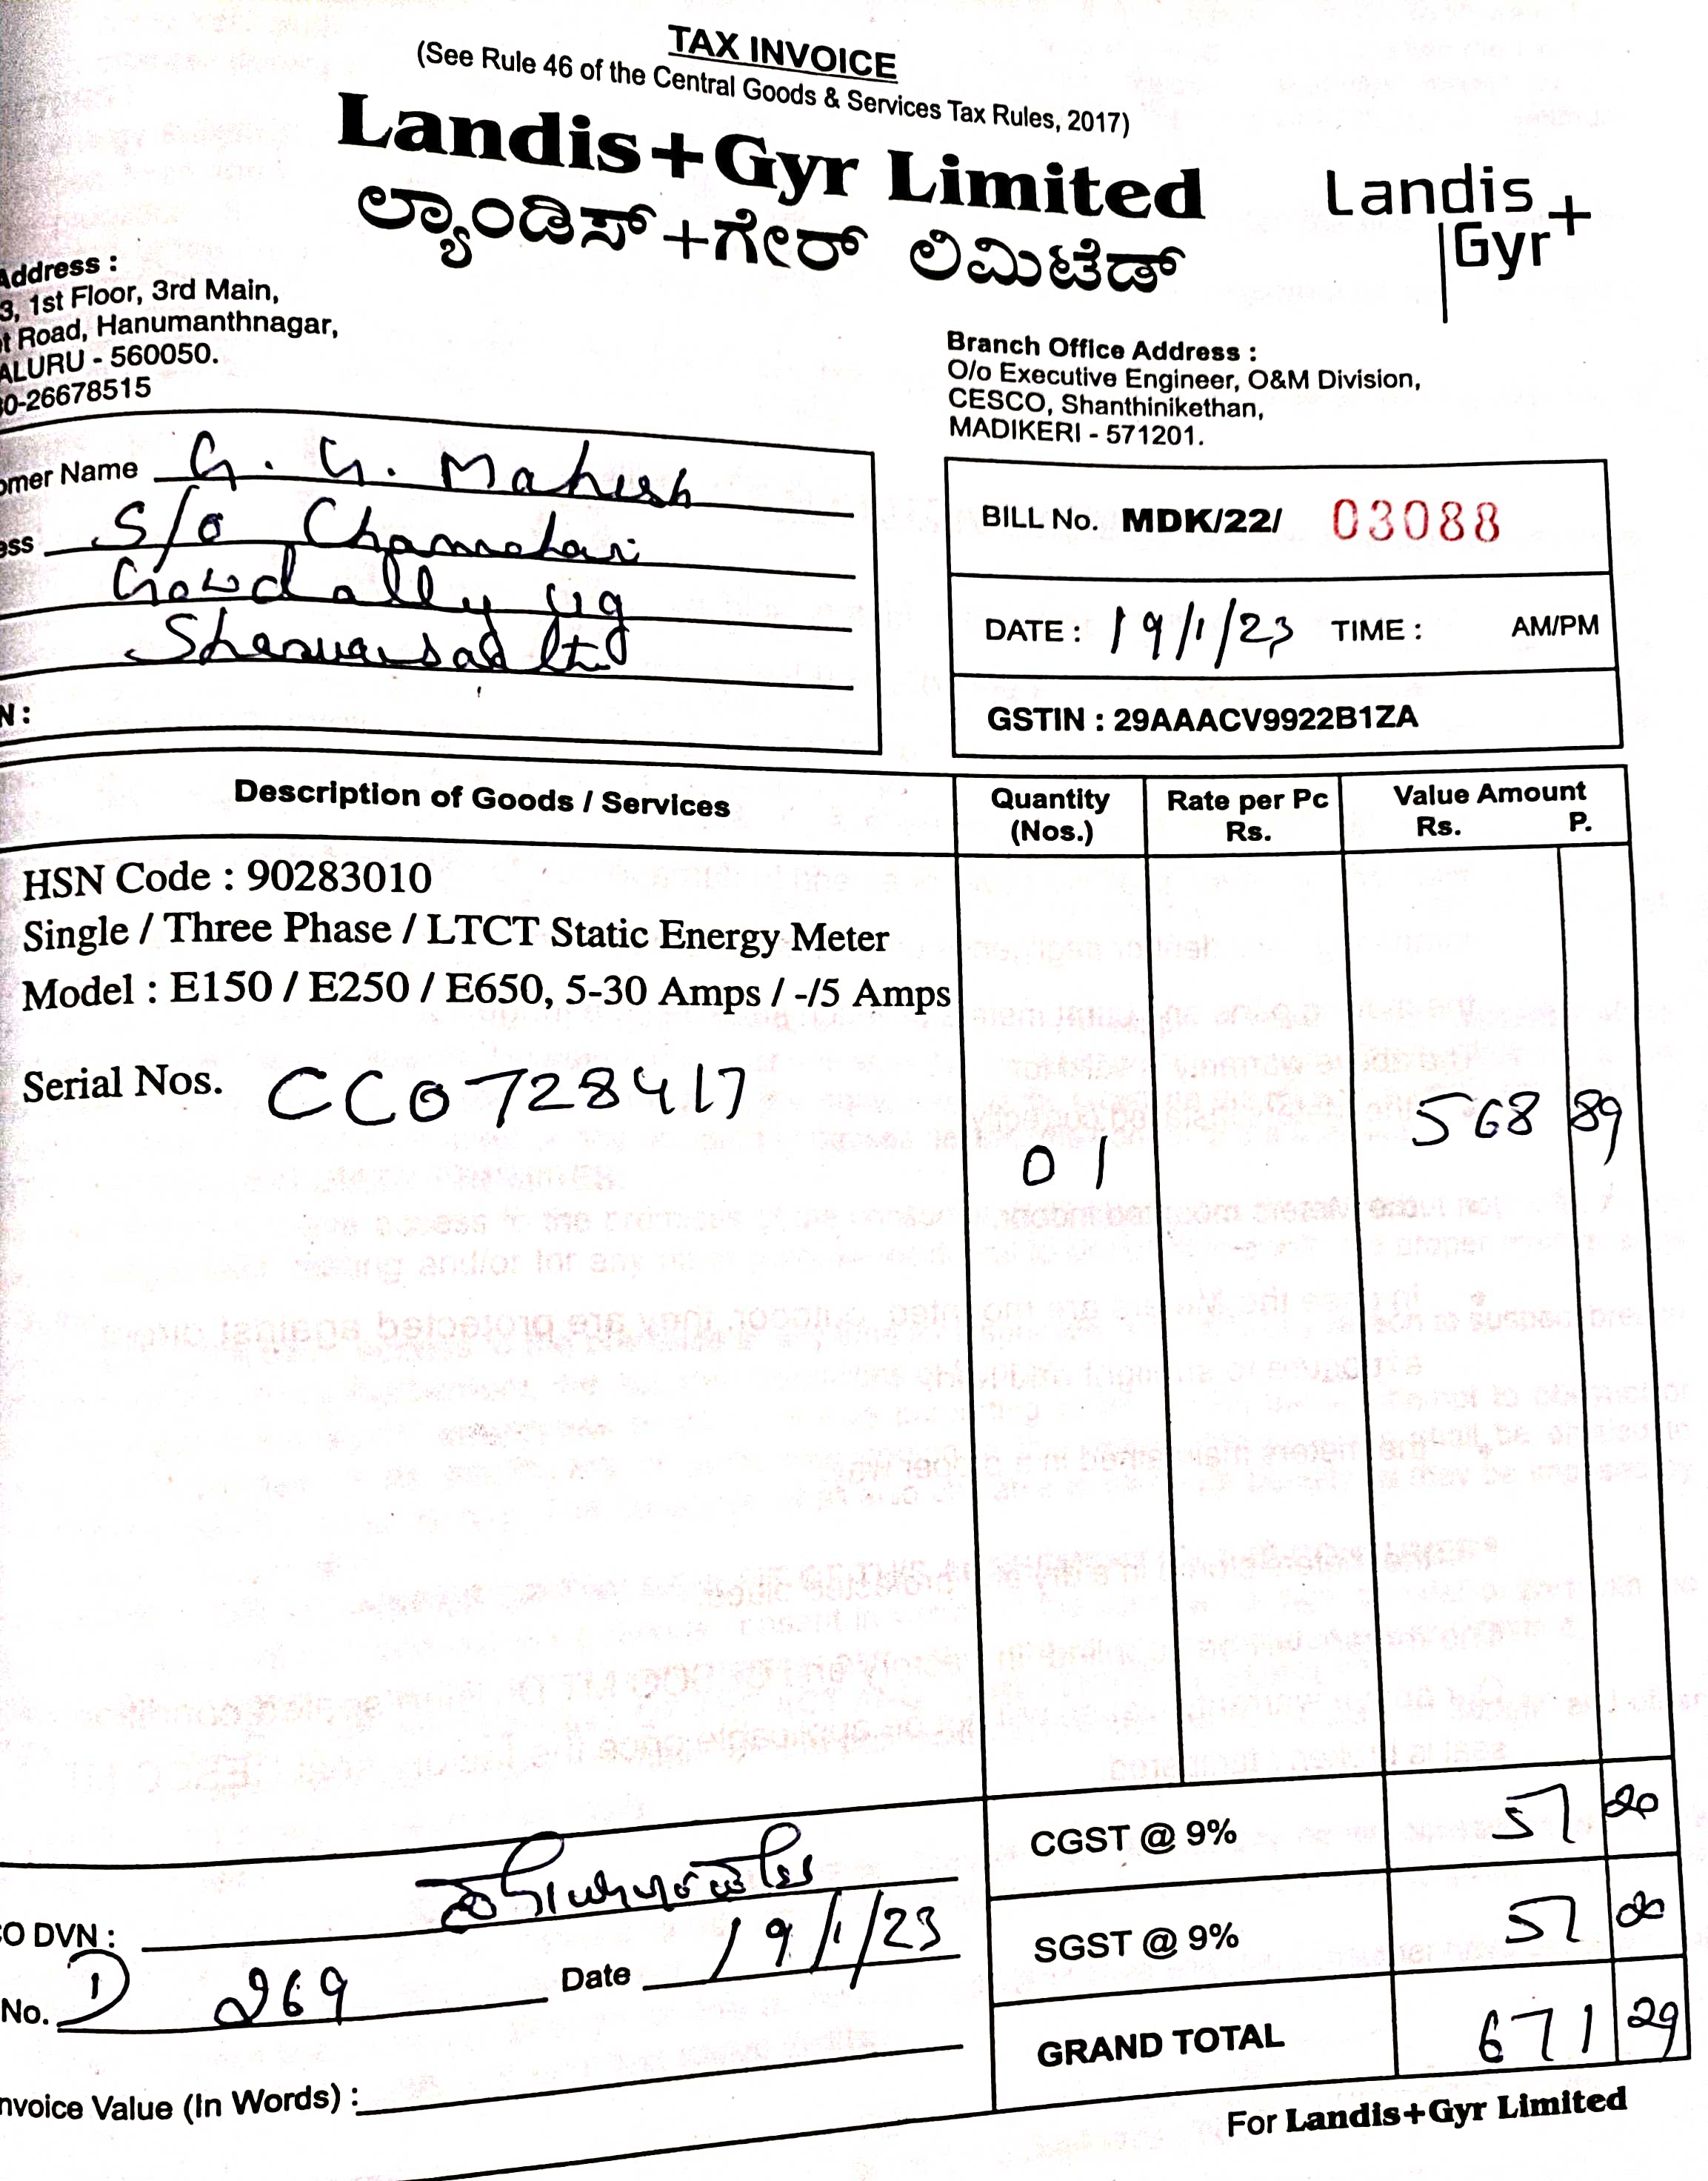 TAX INVOICE
(See Rule 46 of the Central Goods & Services Tax Rules, 2017)
Landis+Gyr Limited
ಲ್ಯಾಂಡಿಸ್+ಗೇರ್ ಲಿಮಿಟೆಡ್
Landis
Gyr+
Address :
3, 1st Floor, 3rd Main,
t Road, Hanumanthnagar,
ALURU - 560050.
0-26678515
Branch Office Address :
O/o Executive Engineer, O&M Division,
CESCO, Shanthinikethan,
MADIKERI - 571201.
omer Name G. G. Mahesh
ess S/o
Gowdally
N :
BILL No. MDK/22/ 03088
DATE : 19/1/23 TIME : AM/PM
GSTIN : 29AAACV9922B1ZA
Description of Goods / Services Quantity (Nos.) Rate per Pc Rs. Value Amount Rs. P.
HSN Code : 90283010
Single / Three Phase / LTCT Static Energy Meter
Model : E150 / E250 / E650, 5-30 Amps / -/5 Amps
Serial Nos. CC0728417
01 568 89
CGST @ 9% 51 20
SGST @ 9% 51 20
GRAND TOTAL 671 29
O DVN :
No. D 269 Date 19/1/23
nvoice Value (In Words) :
For Landis+Gyr Limited